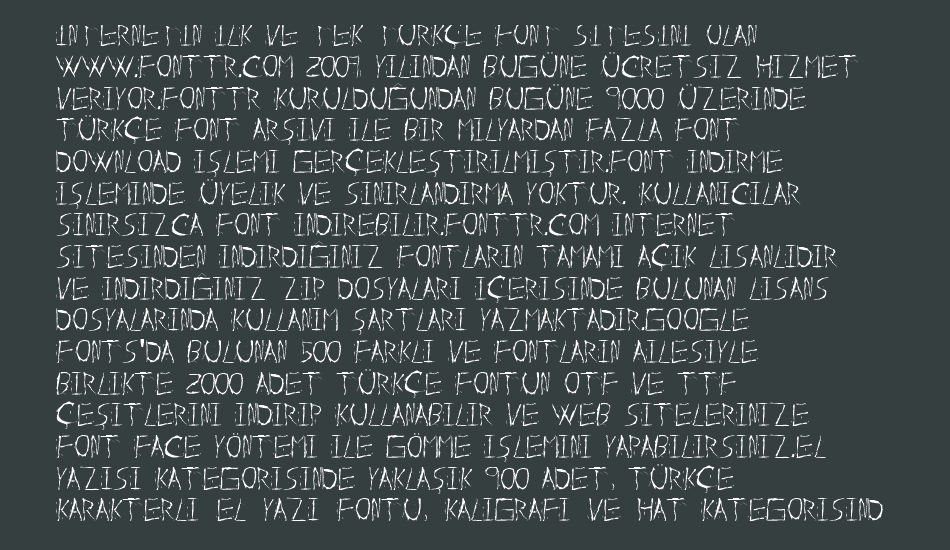 INTERNETIN ILK VE TEK TÜRKÇE FONT SITESINI OLAN
WWW.FONTTR.COM 2009 YILINDAN BUGÜNE ÜCRETSIZ HIZMET
VERIYOR.FONTTR KURULDUĞUNDAN BUGÜNE 9000 ÜZERINDE
TÜRKÇE FONT ARŞIVI ILE BIR MILYARDAN FAZLA FONT
DOWNLOAD IŞLEMI GERÇEKLEŞTIRILMIŞTIR.FONT INDIRME
IŞLEMINDE ÜYELIK VE SINIRLANDIRMA YOKTUR. KULLANICILAR
SINIRSIZCA FONT INDIREBILIR.FONTTR.COM INTERNET
SITESINDEN INDIRDIĞINIZ FONTLARIN TAMAMI AÇIK LISANLIDIR
VE INDIRDIĞINIZ ZIP DOSYALARI IÇERISINDE BULUNAN LISANS
DOSYALARINDA KULLANIM ŞARTLARI YAZMAKTADIR.GOOGLE
FONTS'DA BULUNAN 500 FARKLI VE FONTLARIN AILESIYLE
BIRLIKTE 2000 ADET TÜRKÇE FONTUN OTF VE TTF
ÇEŞITLERINI INDIRIP KULLANABILIR VE WEB SITELERINIZE
FONT FACE YÖNTEMI ILE GÖMME IŞLEMINI YAPABILIRSINIZ.EL
YAZISI KATEGORISINDE YAKLAŞIK 900 ADET, TÜRKÇE
KARAKTERLI EL YAZI FONTU, KALIGRAFI VE HAT KATEGORISIND